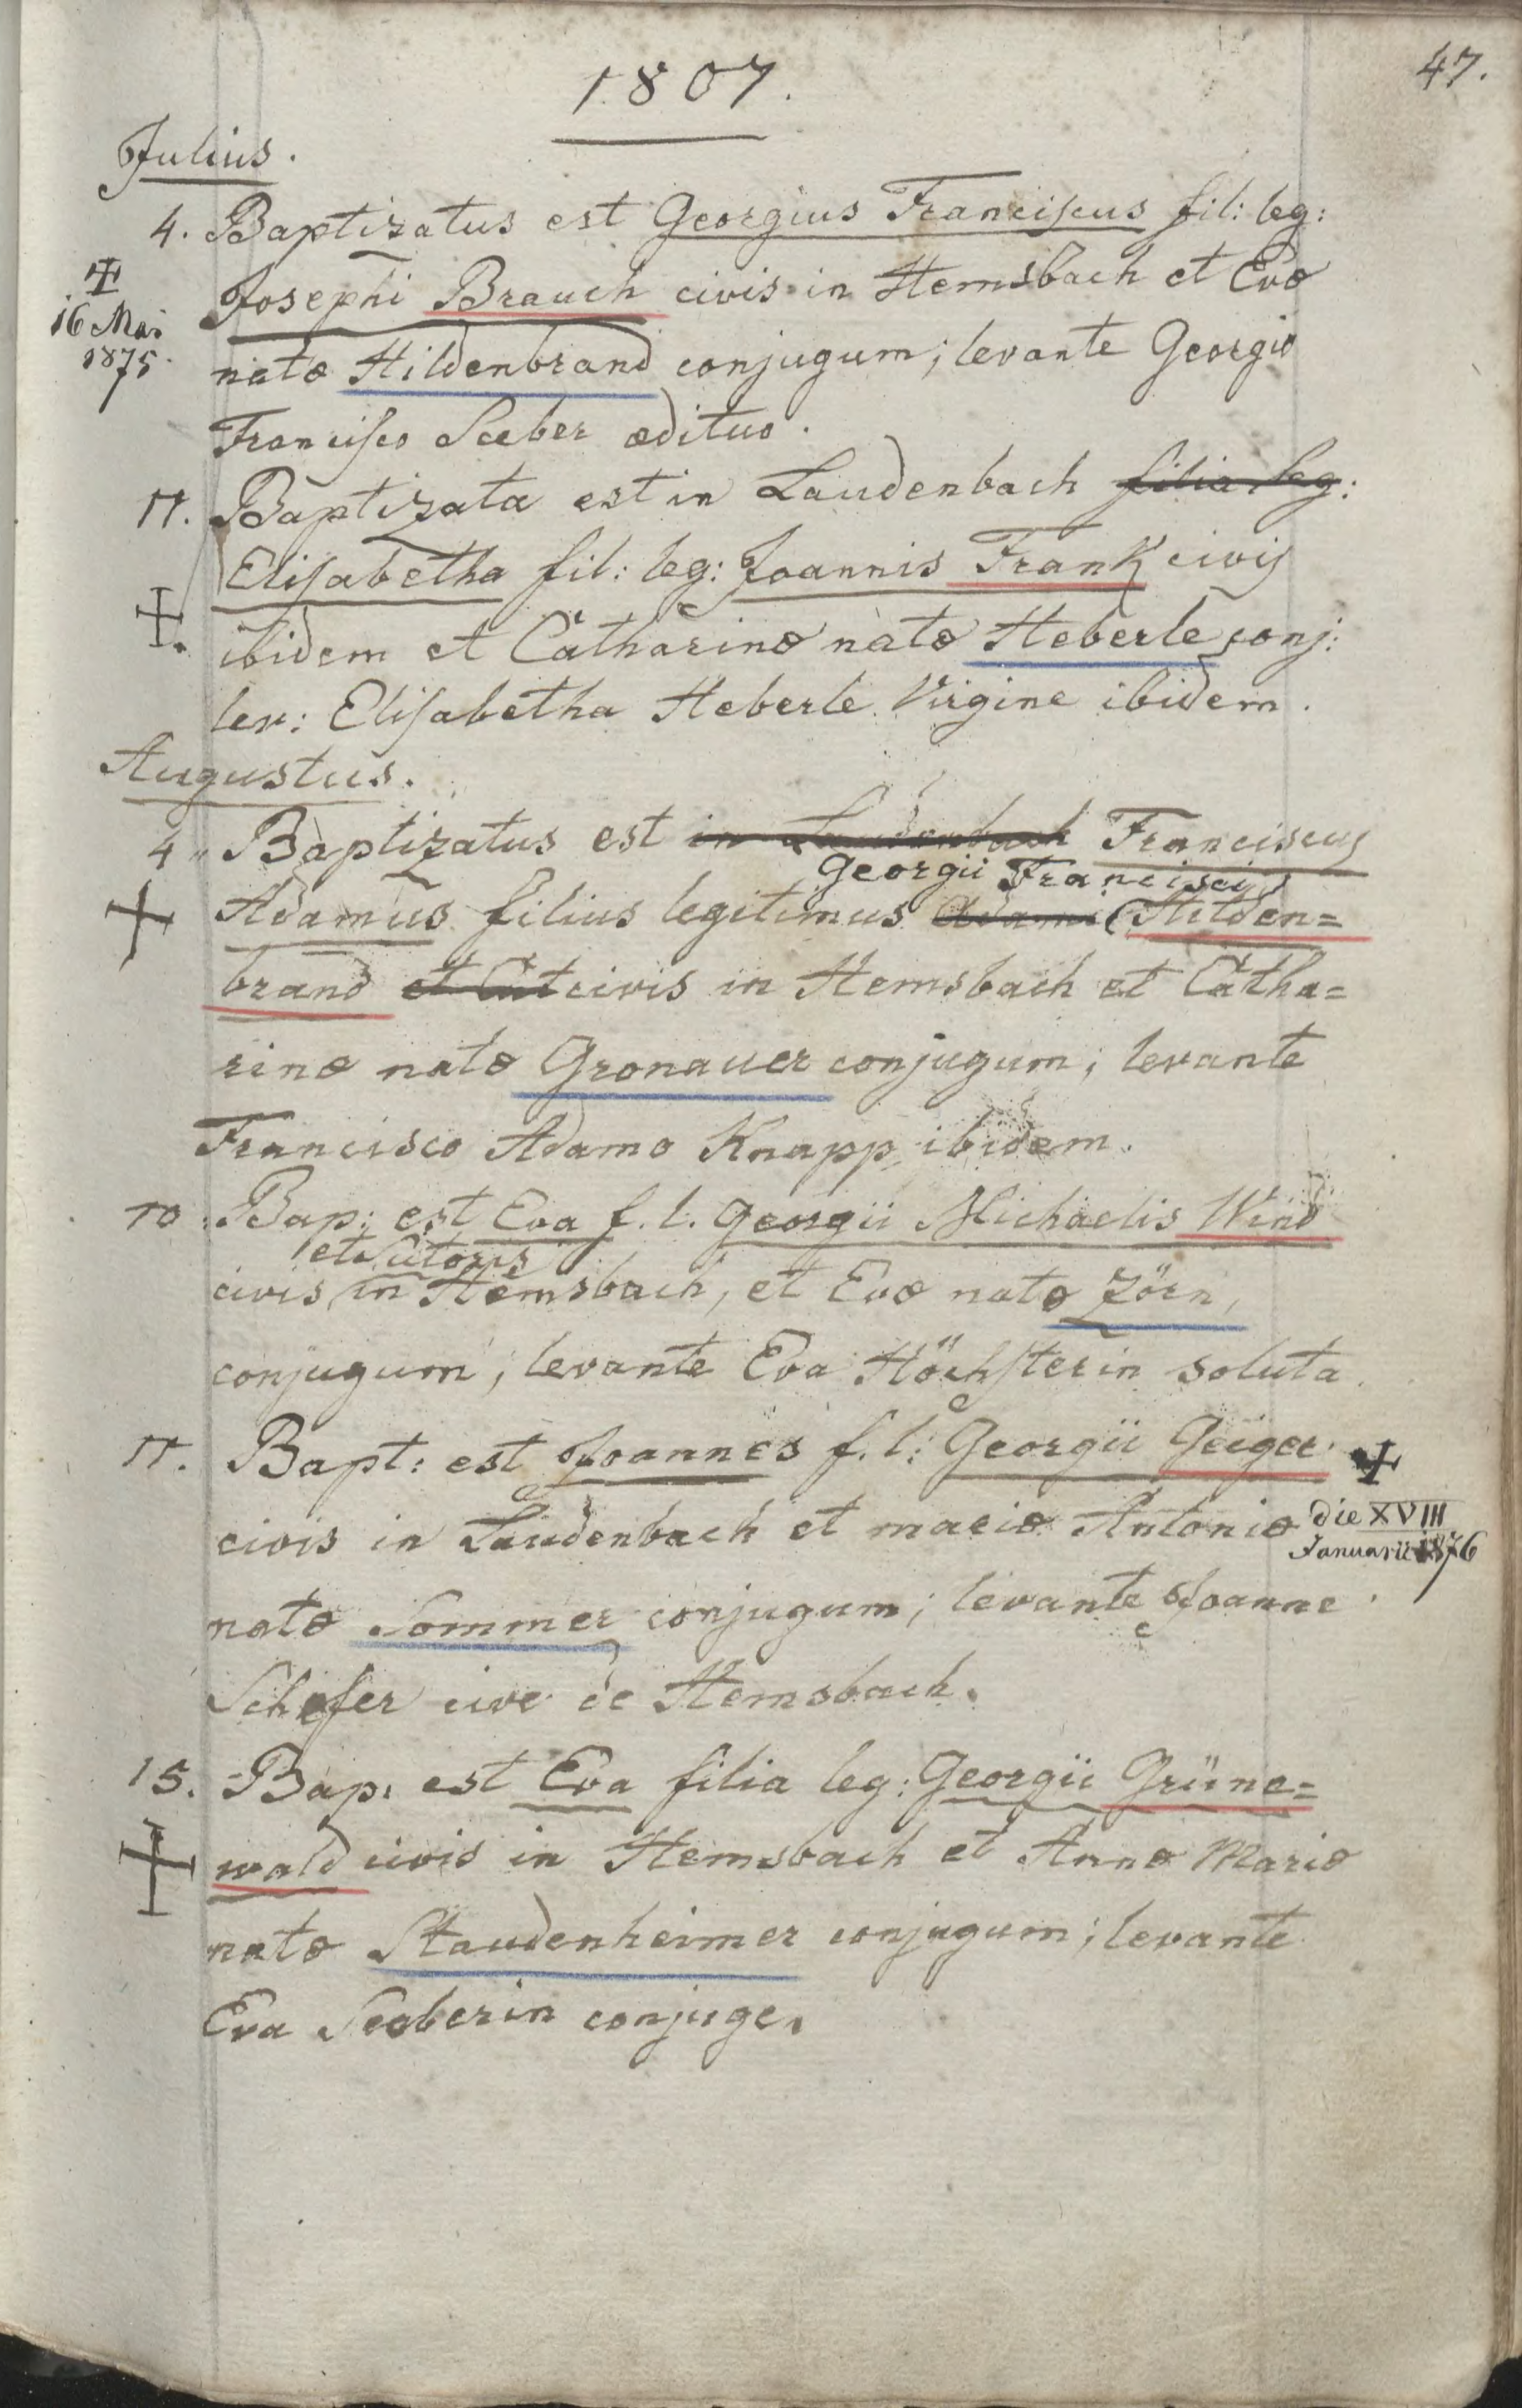 47.
1807.
Julius.
4. Baptizatus est Georgius Franciscus fil: leg:
Josephi Brauch civis in Hemsbach et Evæ
✝
16 Mai
1875.
natæ Hildenbrand conjugum; levante Georgio
Francisco Seeber ædituo.
11. Baptizata est in Laudenbach filia leg:
Elisabetha fil: leg: Joannis Frank civis
✝.
ibidem et Catharinæ natæ Heberle conj:
lev: Elisabetha Heberle Virgine ibidem.
Augustus.
4. Baptizatus est in Laudenbach Franciscus
Georgii Francisci
✝ Adamus filius legitimus Adami Hilden=
brand et Cat civis in Hemsbach et Catha=
rinæ natæ Gronauer conjugum; levante
Francisco Adamo Knapp ibidem.
10. Bap: est Eva f. l. Georgii Michaelis Wind
et Sutoris
civis in Hemsbach, et Evæ natæ Zörn,
conjugum; levante Eva Höchsterin soluta.
11. Bapt: est Joannes f. l: Georgii Geiger ✝
civis in Laudenbach et mariæ Antoniæ
die XVIII
Januarii 1876
natæ Sommer conjugum; levante Joanne
Schefer cive de Hemsbach.
15. Bap: est Eva filia leg: Georgii Grüne=
✝ wald civis in Hemsbach et Annæ Mariæ
natæ Staudenheimer conjugum; levante
Eva Seeberin conjuge.